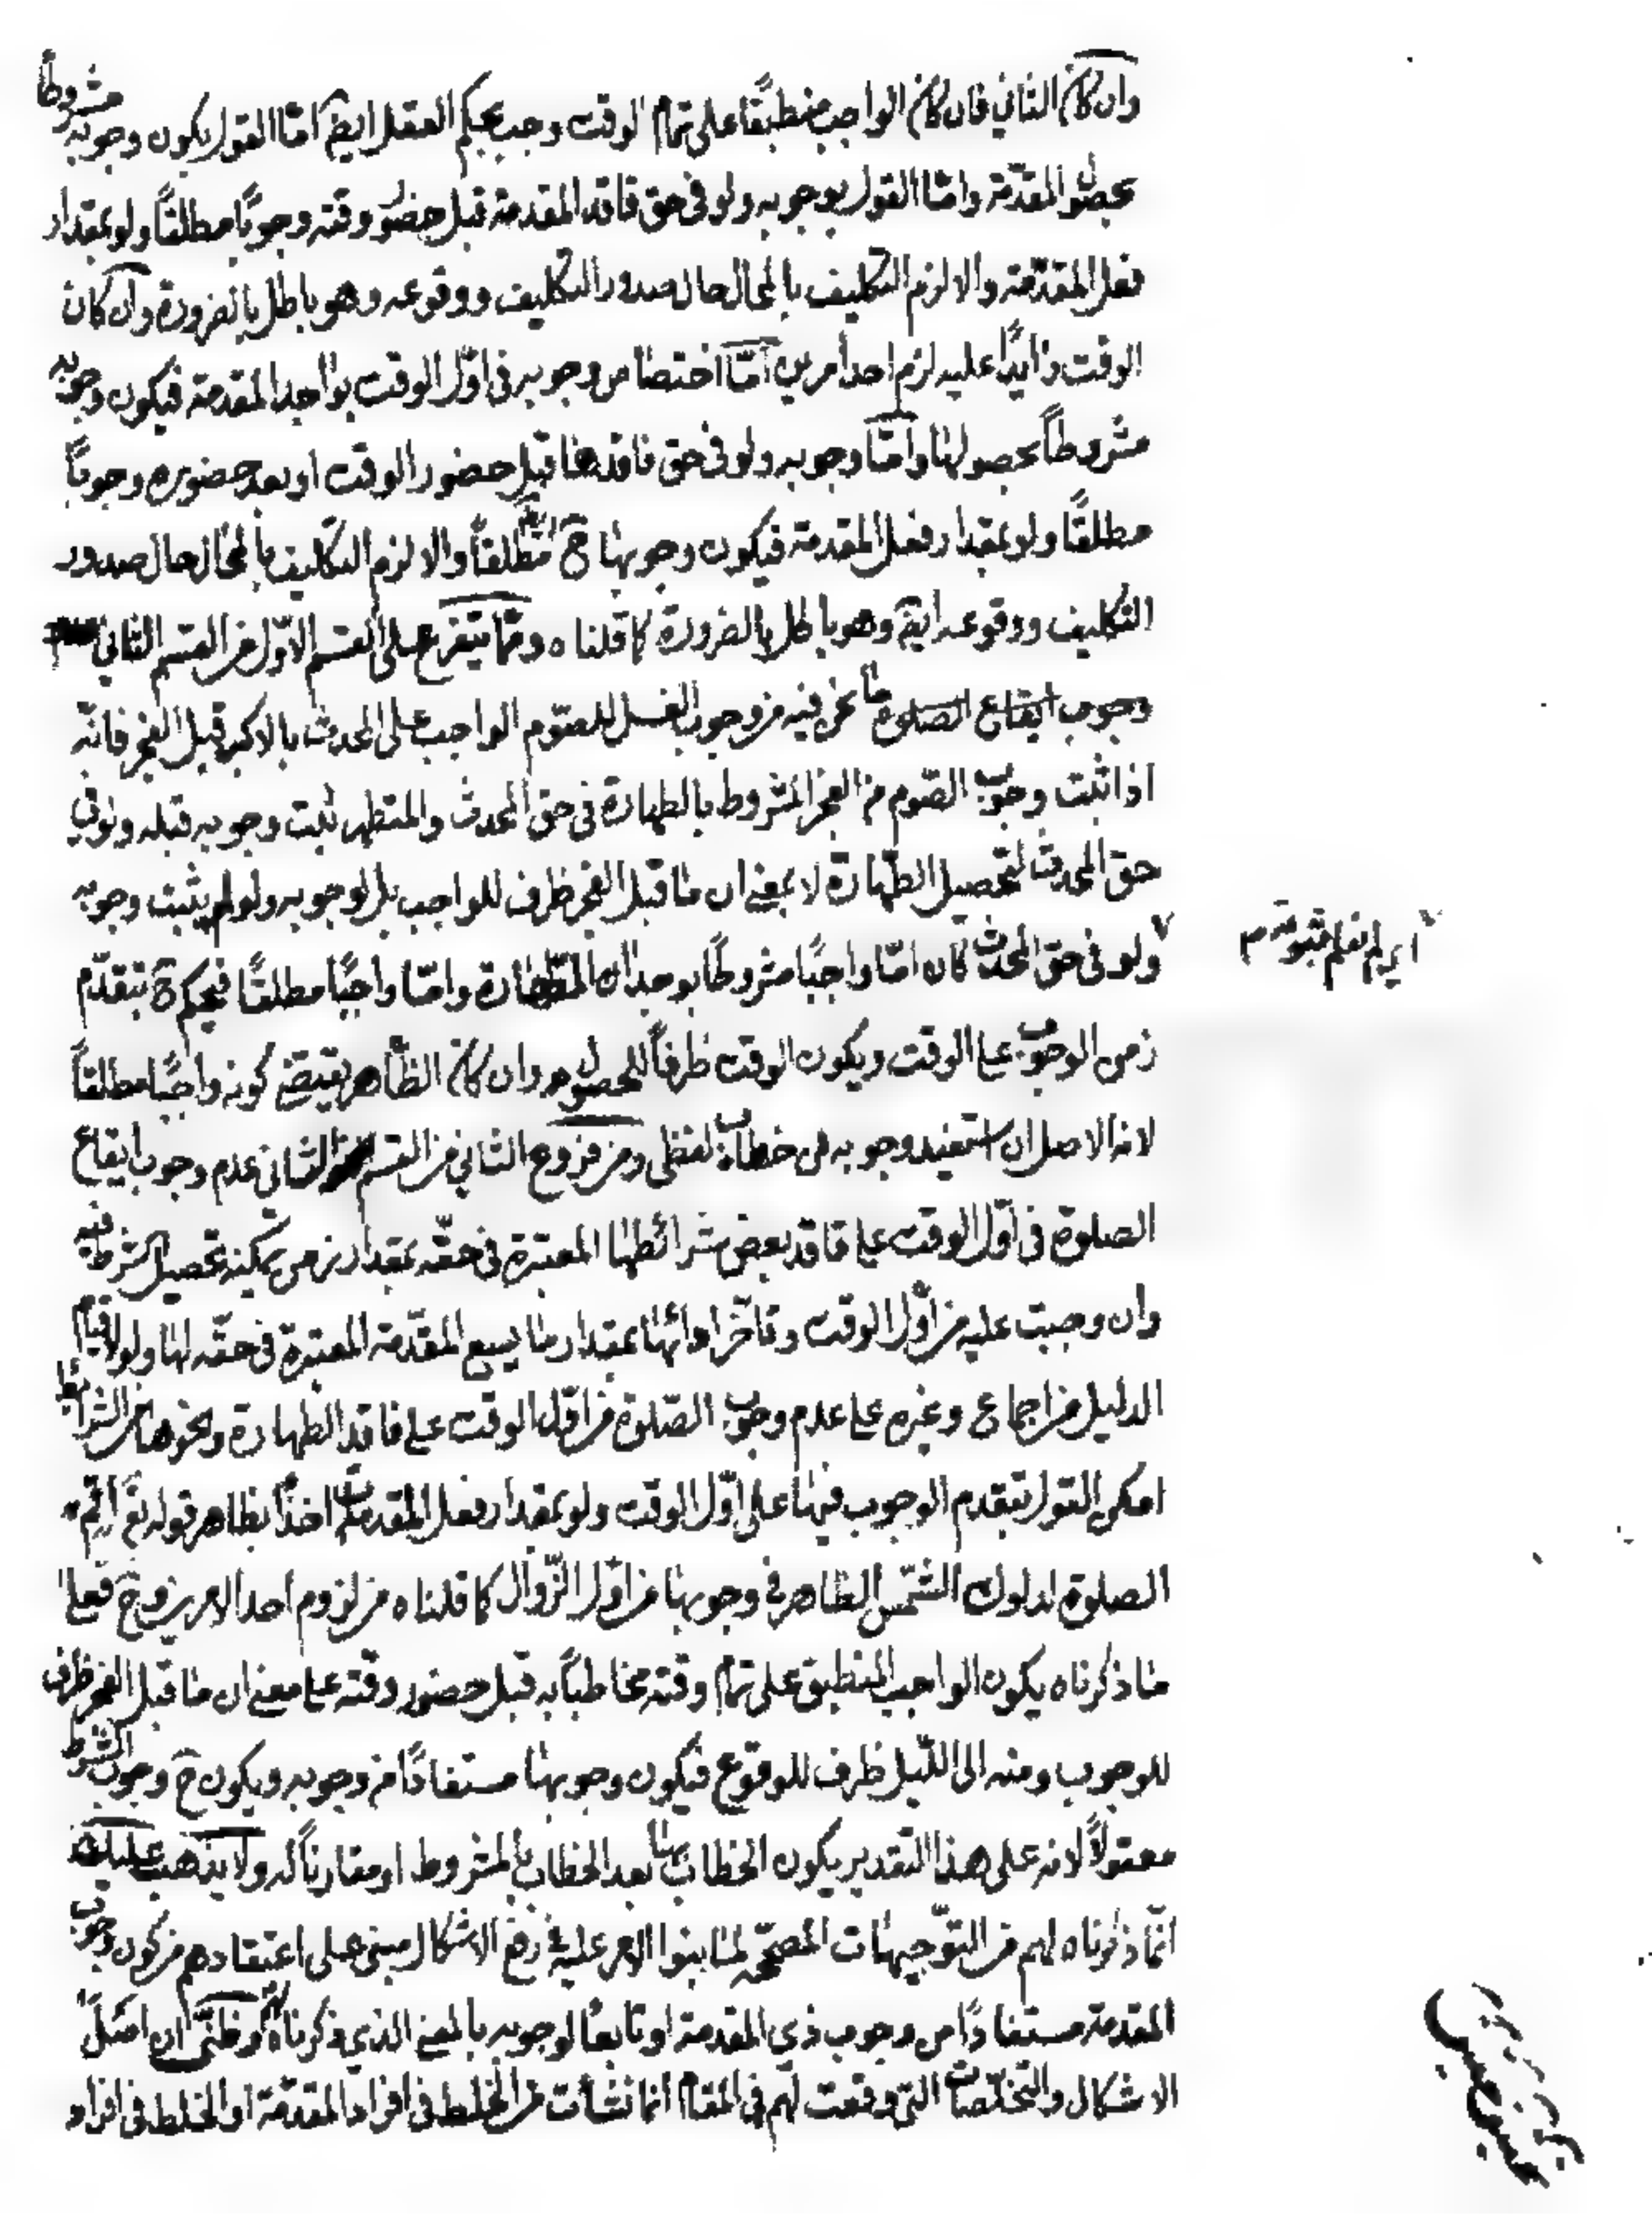 وان كان الثاني فان كان الواجب منطبقًا على تمام الوقت وجب بحكم العقل ايضا امّا القول بكون وجوبه مشروطًا
بحصول المقدّمة وامّا القول بوجوبه ولو في حق فاقد المقدمة قبل حضور وقته وجوبًا مطلقًا ولو بمقدار
فعل المقدّمة والا لزم التكليف بالمحال حال صدور التكليف ووقوعه وهو باطل بالضرورة وان كان
الوقت زايدًا عليه لزم احد امرين امّا اختصاص وجوبه في اوّل الوقت بواجد المقدمة فيكون وجوبه
مشروطاً بحصولها وامّا وجوبه ولو في حق فاقدها قبل حضور الوقت او بعد حضوره وجوباً
مطلقًا ولو بمقدار فعل المقدمة فيكون وجوبها ح مطلقاً والا لزم التكليف بالمحال حال صدور
التكليف ووقوعه ايضا وهو باطل بالضرورة كما قلناه وممّا يتفرع على القسم الاوّل من القسم الثاني
وجوب ايقاع الصلوة ما نحن فيه من وجوب الغسل للصّوم الواجب على المحدث بالاكبر قبل الفجر فانّه
اذا ثبت وجوب الصّوم من الفجر المشروط بالطهارة في حق المحدث والمتطهر ثبت وجوبه قبله ولو في
حق المحدث لتحصيل الطّهارة لا بمعنى ان ما قبل الفجر ظرف للواجب بل لوجوبه ولو لم يثبت وجوبه
ولو في حق المحدث كان امّا واجبًا مشروطًا بوجدان الطّهارة وامّا واجبًا مطلقًا فيحكم ح بتقدّم
اي لم نعلم ثبوته م
زمن الوجوب على الوقت ويكون الوقت ظرفاً للحصول وان كان الظّاهر يقتضي كونه واجبًا مطلقاً
لانه الاصل ان استفيد وجوبه من خطاب لفظي ومن فروع الثاني من القسم الثاني عدم وجوب ايقاع
الصلوة في اوّل الوقت على فاقد بعض شرائطها المعتبرة في حقّه بمقدار زمن يمكنه تحصيل الشرط فيه
وان وجبت عليه من اوّل الوقت وتاخّر ادائها بمقدار ما يسع المقدّمة المعتبرة في حقّه لها ولولا قيام
الدليل من اجماع وغيره على عدم وجوب الصّلوة من اوّل الوقت على فاقد الطهارة ونحوها من الشرائط
امكن القول بتقدم الوجوب فيها على اوّل الوقت ولو بمقدار فعل المقدمات اخذًا بظاهر قوله تع اقم
الصلوة لدلوك الشّمس الظاهر في وجوبها من اوّل الزّوال كما قلناه من لزوم احد الامرين وح فعلى
ما ذكرناه يكون الواجب المنطبق على تمام وقته مخاطبًا به قبل حضور وقته على معنى ان ما قبل الفجر ظرف
للوجوب ومنه الى اللّيل ظرف للوقوع فيكون وجوبها مستفادًا من وجوبه ويكون ح وجوب الشرط
معقولًا لانه على هذا التقدير يكون الخطاب بها بعد الخطاب بالمشروط او مقارناً له ولا يذهب عليك
انّما ذكرناه لهم من التوّجيهات المصحّحة لما بنوا الامر عليه في رفع الاشكال مبني على اعتقادهم من كون وجوب
المقدمة مستفادًا من وجوب ذي المقدمة او تابعًا لوجوبه بالمعنى الذي ذكرناه وظنّي ان اصل
الاشكال والتخلّصات التي وقعت لهم في المقام انما نشأت من الخلط في افراد المقدّمة او الخلط في افراد